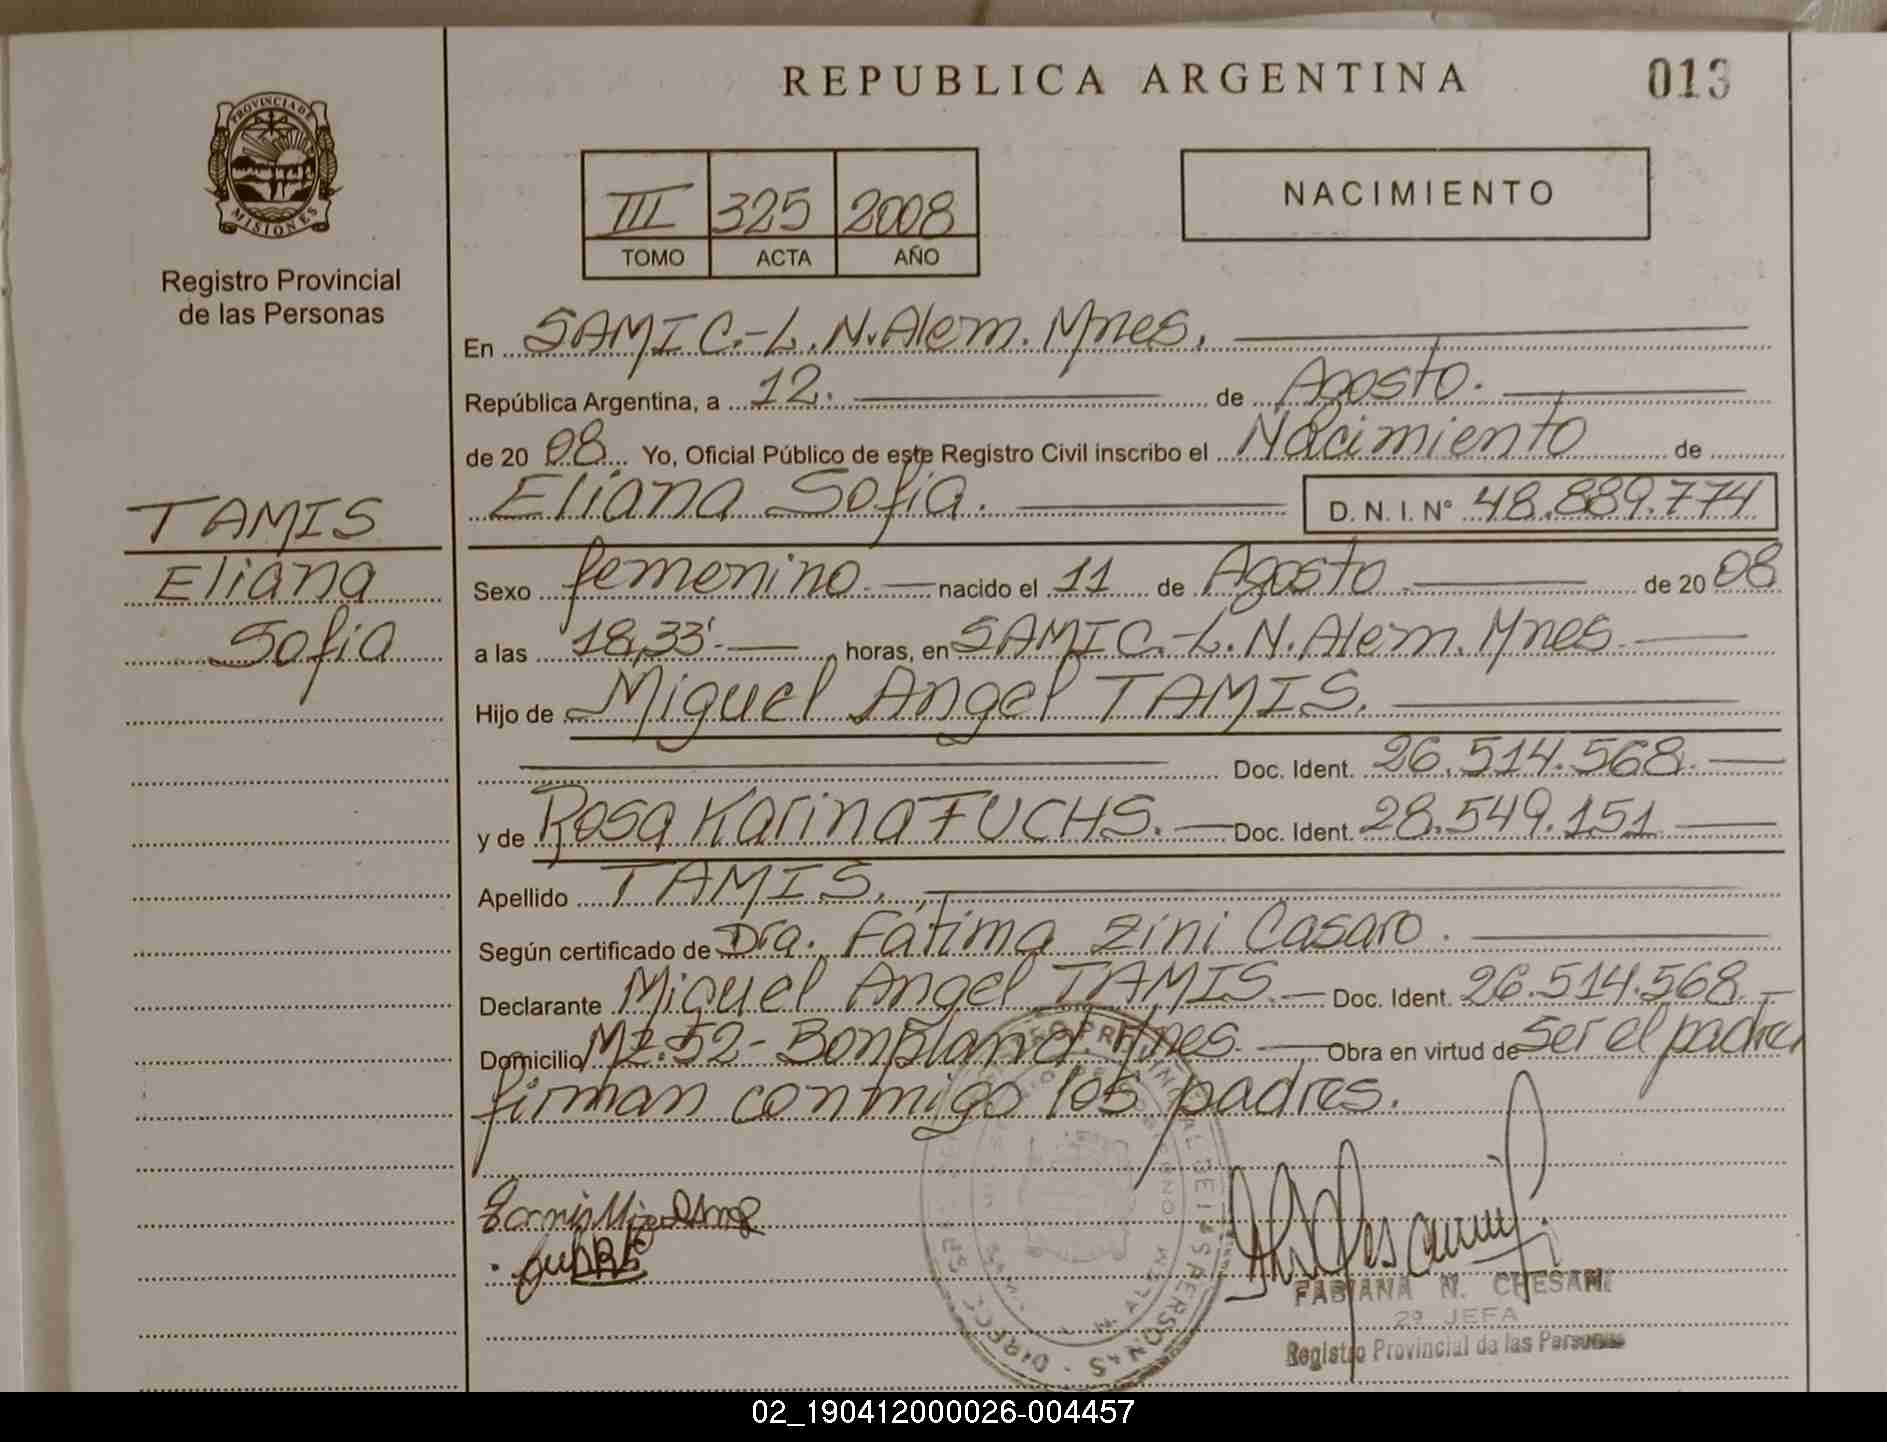 REPUBLICA ARGENTINA
013
PROVINCIA DE
MISIONES
Registro Provincial
de las Personas
III 325 2008
TOMO ACTA AÑO
NACIMIENTO
En SAMIC.-L.N.Alem.Mnes.
República Argentina, a 12. de Agosto.
de 20 08 Yo, Oficial Público de este Registro Civil inscribo el Nacimiento de
Eliana Sofia. D. N. I. N° 48.889.774
TAMIS
Eliana
Sofia
Sexo femenino.- nacido el 11 de Agosto. de 20 08
a las 18,33'.- horas, en SAMIC.-L.N.Alem.Mnes.
Hijo de Miguel Angel TAMIS.
Doc. Ident. 26.514.568.
y de Rosa Karina FUCHS. Doc. Ident. 28.549.151
Apellido TAMIS.
Según certificado de Dra. Fátima Zini Casaro.
Declarante Miguel Angel TAMIS. Doc. Ident. 26.514.568.
Domicilio Mz.52-Bonpland.Mnes. Obra en virtud de ser el padre
firman conmigo los padres.
FABIANA N. CHESANI
2º JEFA
Registro Provincial de las Personas
02_190412000026-004457